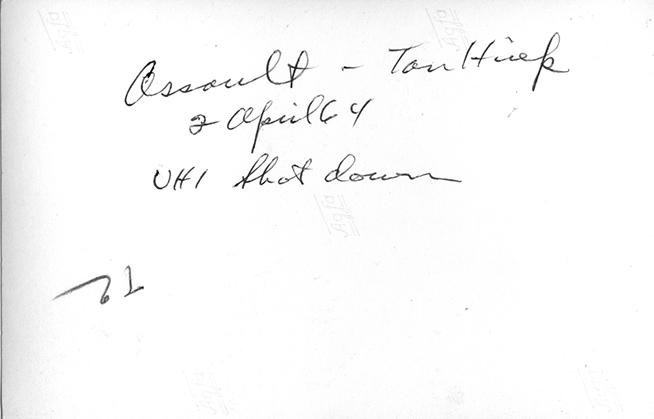 Assault - Tan Hiep
2 April 64
UH1 Shot down
Agfa
Agfa
Agfa
Agfa